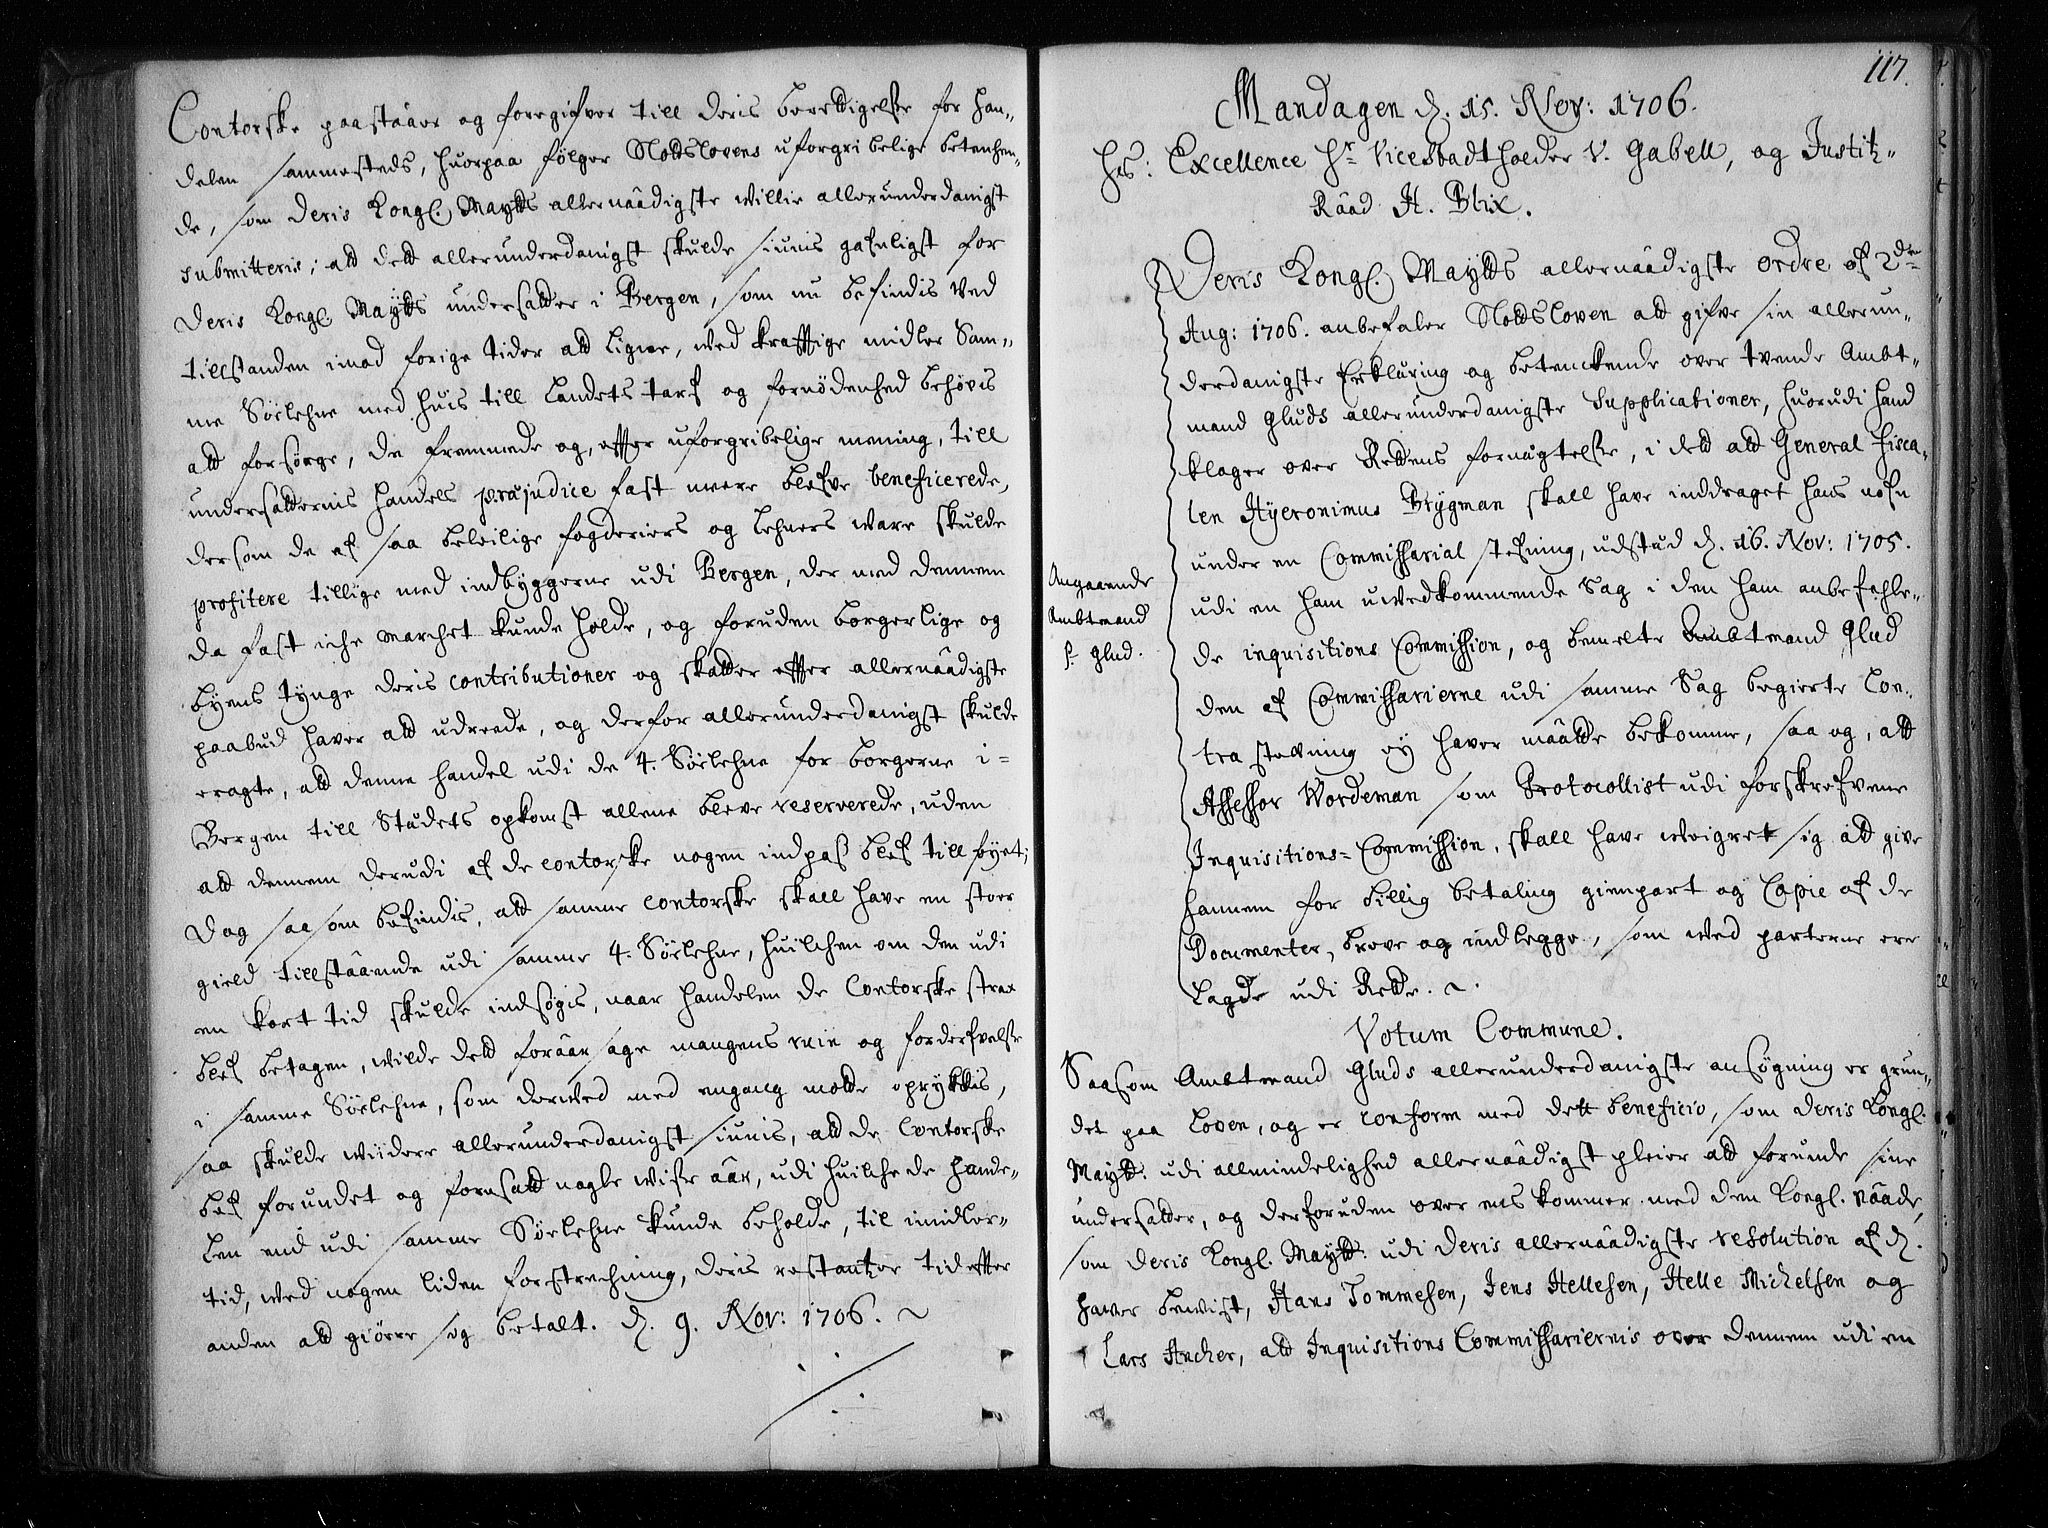 Contorske paastaaer og foregifver till deris berettigelse for han-
delen sammesteds, huorpaa følger Slottslovens uforgribelige betenchen-
de, som Deris Kongl. Maytts allernaadigste villie allerunderdanigst
submitteris; att dett allerunderdanigst skulde siunis gafnligst for
Deris Kongl. Maytts undersatter i Bergen, som nu befindis ved
tillstanden imod forige tider att ligne, ved krafftige midler Sam-
me Sørlehne med huis till Landets tarf og fornødenhed behøvis
att forsørge, de fremmede og, effter uforgribelige mening, till
undersatternis handels præjudice fast meere blefve beneficerede,
dersom de af saa beleilige fogderiers og Lehners ware skulde
profitere tillige med indbyggerne udi Bergen, der med dennem
da fast iche marchet kunde holde, og foruden borgerlige og
byens tynge deris contributioner og skatter effter allernaadigste
paabud haver att udreede, og derfor allerunderdanigst skulde
eragte, att denne handel udi de 4. Sørlehne for borgerne i=
Bergen till Stædets opkomst allene bleve reserverede, uden
att dennem derudi af de contorske nogen indpass blef till føyet;
Dog saasom befindis, att samme contorske skall have en stoer
gield tillstaaende udi samme 4. Sørlehne, huilchen om den udi
en kort tid skulde indsøgis, naar handelen de Contorske strax
blef betagen, wilde dett foraarsage mangens ruin og forderfvelse
i samme Sørlehne, som derved med engang motte opryktis,
saa skulde wiidere allerunderdanigst siunis, att de Contorske
blef forundet og foresatt nogle wisse aar, udi huilche de hande-
len end udi samme Sørlehne kunde beholde, til imidler-
tid, wed nogen liden forstrechning, deris restantzer tid effter
anden att giøre sig betalt. d. 9. Nov: 1706.
117.
Mandagen d. 15. Nov: 1706.
Hs: Excellence Hr Vicestadtholder V. Gabell, og Justitz-
Raad H. Blix.
Deris Kongl. Maytts allernaadigste ordre af 2den
Aug: 1706. anbefaler Slottsloven att gifve sin allerun-
derdanigste Erklæring og betenckende over tvende Ambt-
mand Gluds allerunderdanigste Supplicationer, huorudi hand
klager over Rettens fornægtelse, i dett att General Fisca-
len Hyeronimus Brygman skall have inddraget hans nafn
under en Commissarial stefning, udstæd d. 16. Nov: 1705.
udi en ham uvedkommende Sag i den ham anbefahle-
de inquisitions Commission, og bemelte Ambtmand Glud
den af Commissarierne udi samme Sag begierte Con-
tra stevning ey haver maatte bekomme, saa og, att
Assessor Wordeman som Protocollist udi forskrefvene
Inquisitions=Commission, skall have weigret sig att give
hannem for billig betaling gienpart og Copie af de
Documenter, breve og indlegge, som wed parterne ere
lagde udi Rette.
Angaaende
Ambtmand
S. Glud.
Votum Commune.
Saasom Ambtmand Gluds allerunderdanigste ansøgning er grun-
det paa Loven, og er conform med dett beneficio, som Deris Kongl.
Maytt. udi allmindelighed allernaadigst pleier att forunde sine
undersatter, og derforuden over ens kommer med den Kongl. naade,
som Deris Kongl. Maytt. udi Deris allernaadigste resolution af d.
haver bevist, Hans Tommesen, Jens Hellesen, Helle Michelsen og
Lars Ancher, att Inquisitions Commissariernis over dennem udi en